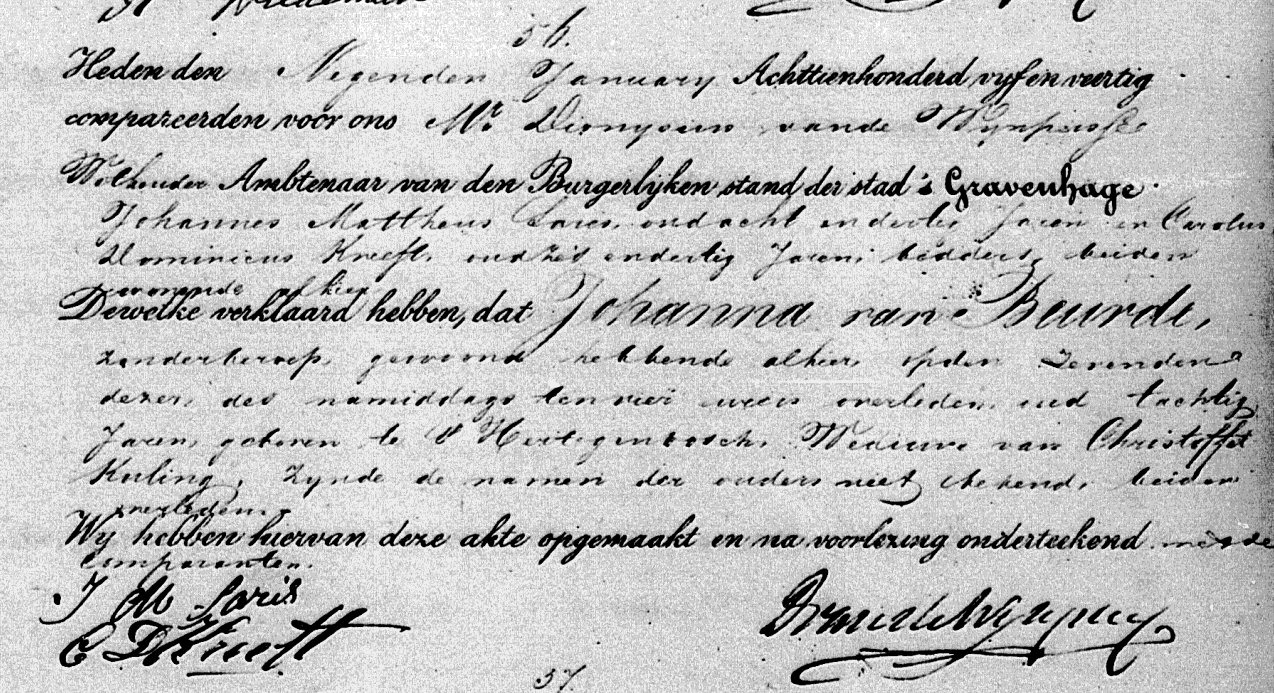 56.
Heden den Negenden January Achttienhonderd vyf en veertig
compareerden voor ons Mr. Dionysius van de Wynpersse
Wethouder Ambtenaar van den Burgerlyken stand der stad 's Gravenhage.
Johannes Mattheus Laris, oud acht en dertig Jaren en Carolus
Dominicus Kreeft, oud zes en dertig Jaren, bidders, beiden
wonende alhier
Dewelke verklaard hebben, dat Johanna van Beurde,
zonder beroep, gewoond hebbende alhier, op den Zevenden
dezer, des namiddags ten vier ure is overleden, oud tachtig
Jaren, geboren te 's Hertogenbosch, Weduwe van Christoffel
Kuling, Zynde de namen der ouders niet bekend, beiden
overleden.
Wy hebben hiervan deze akte opgemaakt en na voorlezing onderteekend met de
Comparanten.
J M Laris
C D Kreeft
57.